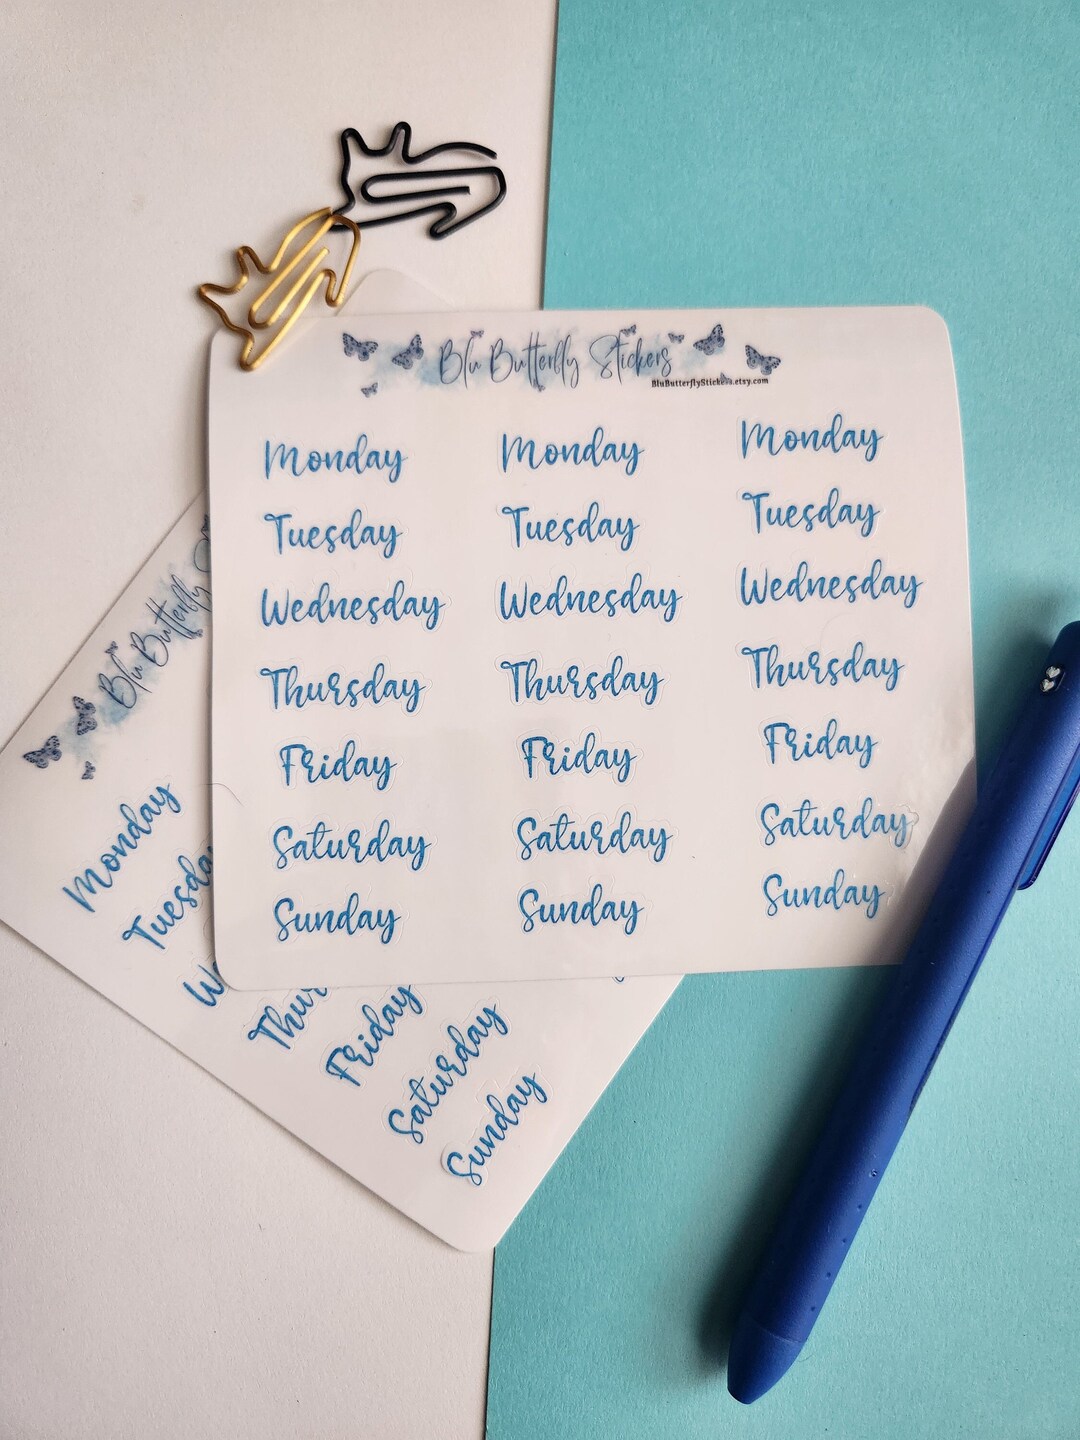 Blu Butterfly Stickers
BluButterflyStickers.etsy.com
Monday Monday Monday
Tuesday Tuesday Tuesday
Wednesday Wednesday Wednesday
Thursday Thursday Thursday
Friday Friday Friday
Saturday Saturday Saturday
Sunday Sunday Sunday
Blu Butterfly
Monday
Tuesda
We
Thur
Friday
Saturday
Sunday